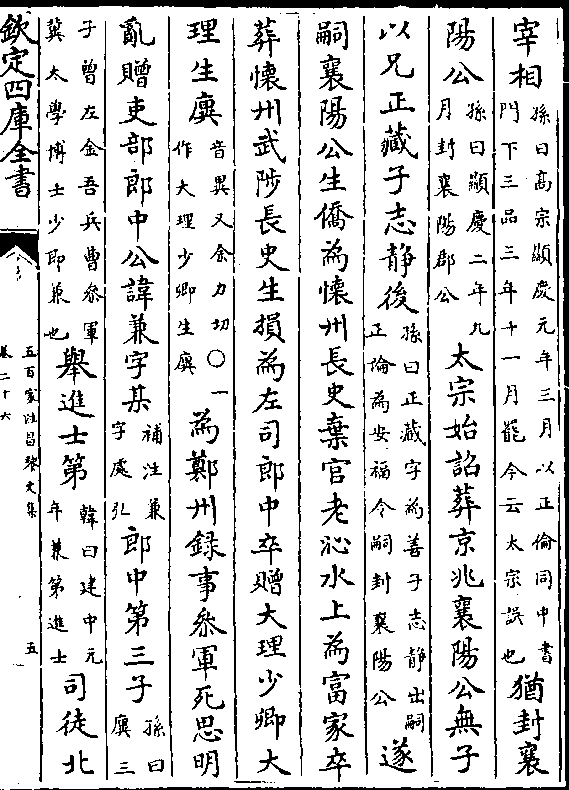 宰相孫曰高宗顯慶元年三月以正倫同中書門下三品三年十一月罷今云太宗誤也猶封襄
陽公孫曰顯慶二年九月封襄陽郡公太宗始詔葬京兆襄陽公無子
以兄正藏子志静後孫曰正藏字為善子志静出嗣正論為安福令嗣封襄陽公遂
嗣襄陽公生僑為懷州長史棄官老沁水上為富家卒
葬懷州武陟長史生損為左司郎中卒贈大理少卿大
理生廙音異又余力切○一作大理少卿生廙為鄭州録事叅軍死思明
亂贈吏部郎中公諱兼字某補注兼字處弘郎中第三子孫曰廙三
子曾左金吾兵曹叅軍冀太學博士少即兼也舉進士第韓曰建中元年兼第進士司徒北
欽定四庫全書
五百家注昌黎文集
卷二十六
五